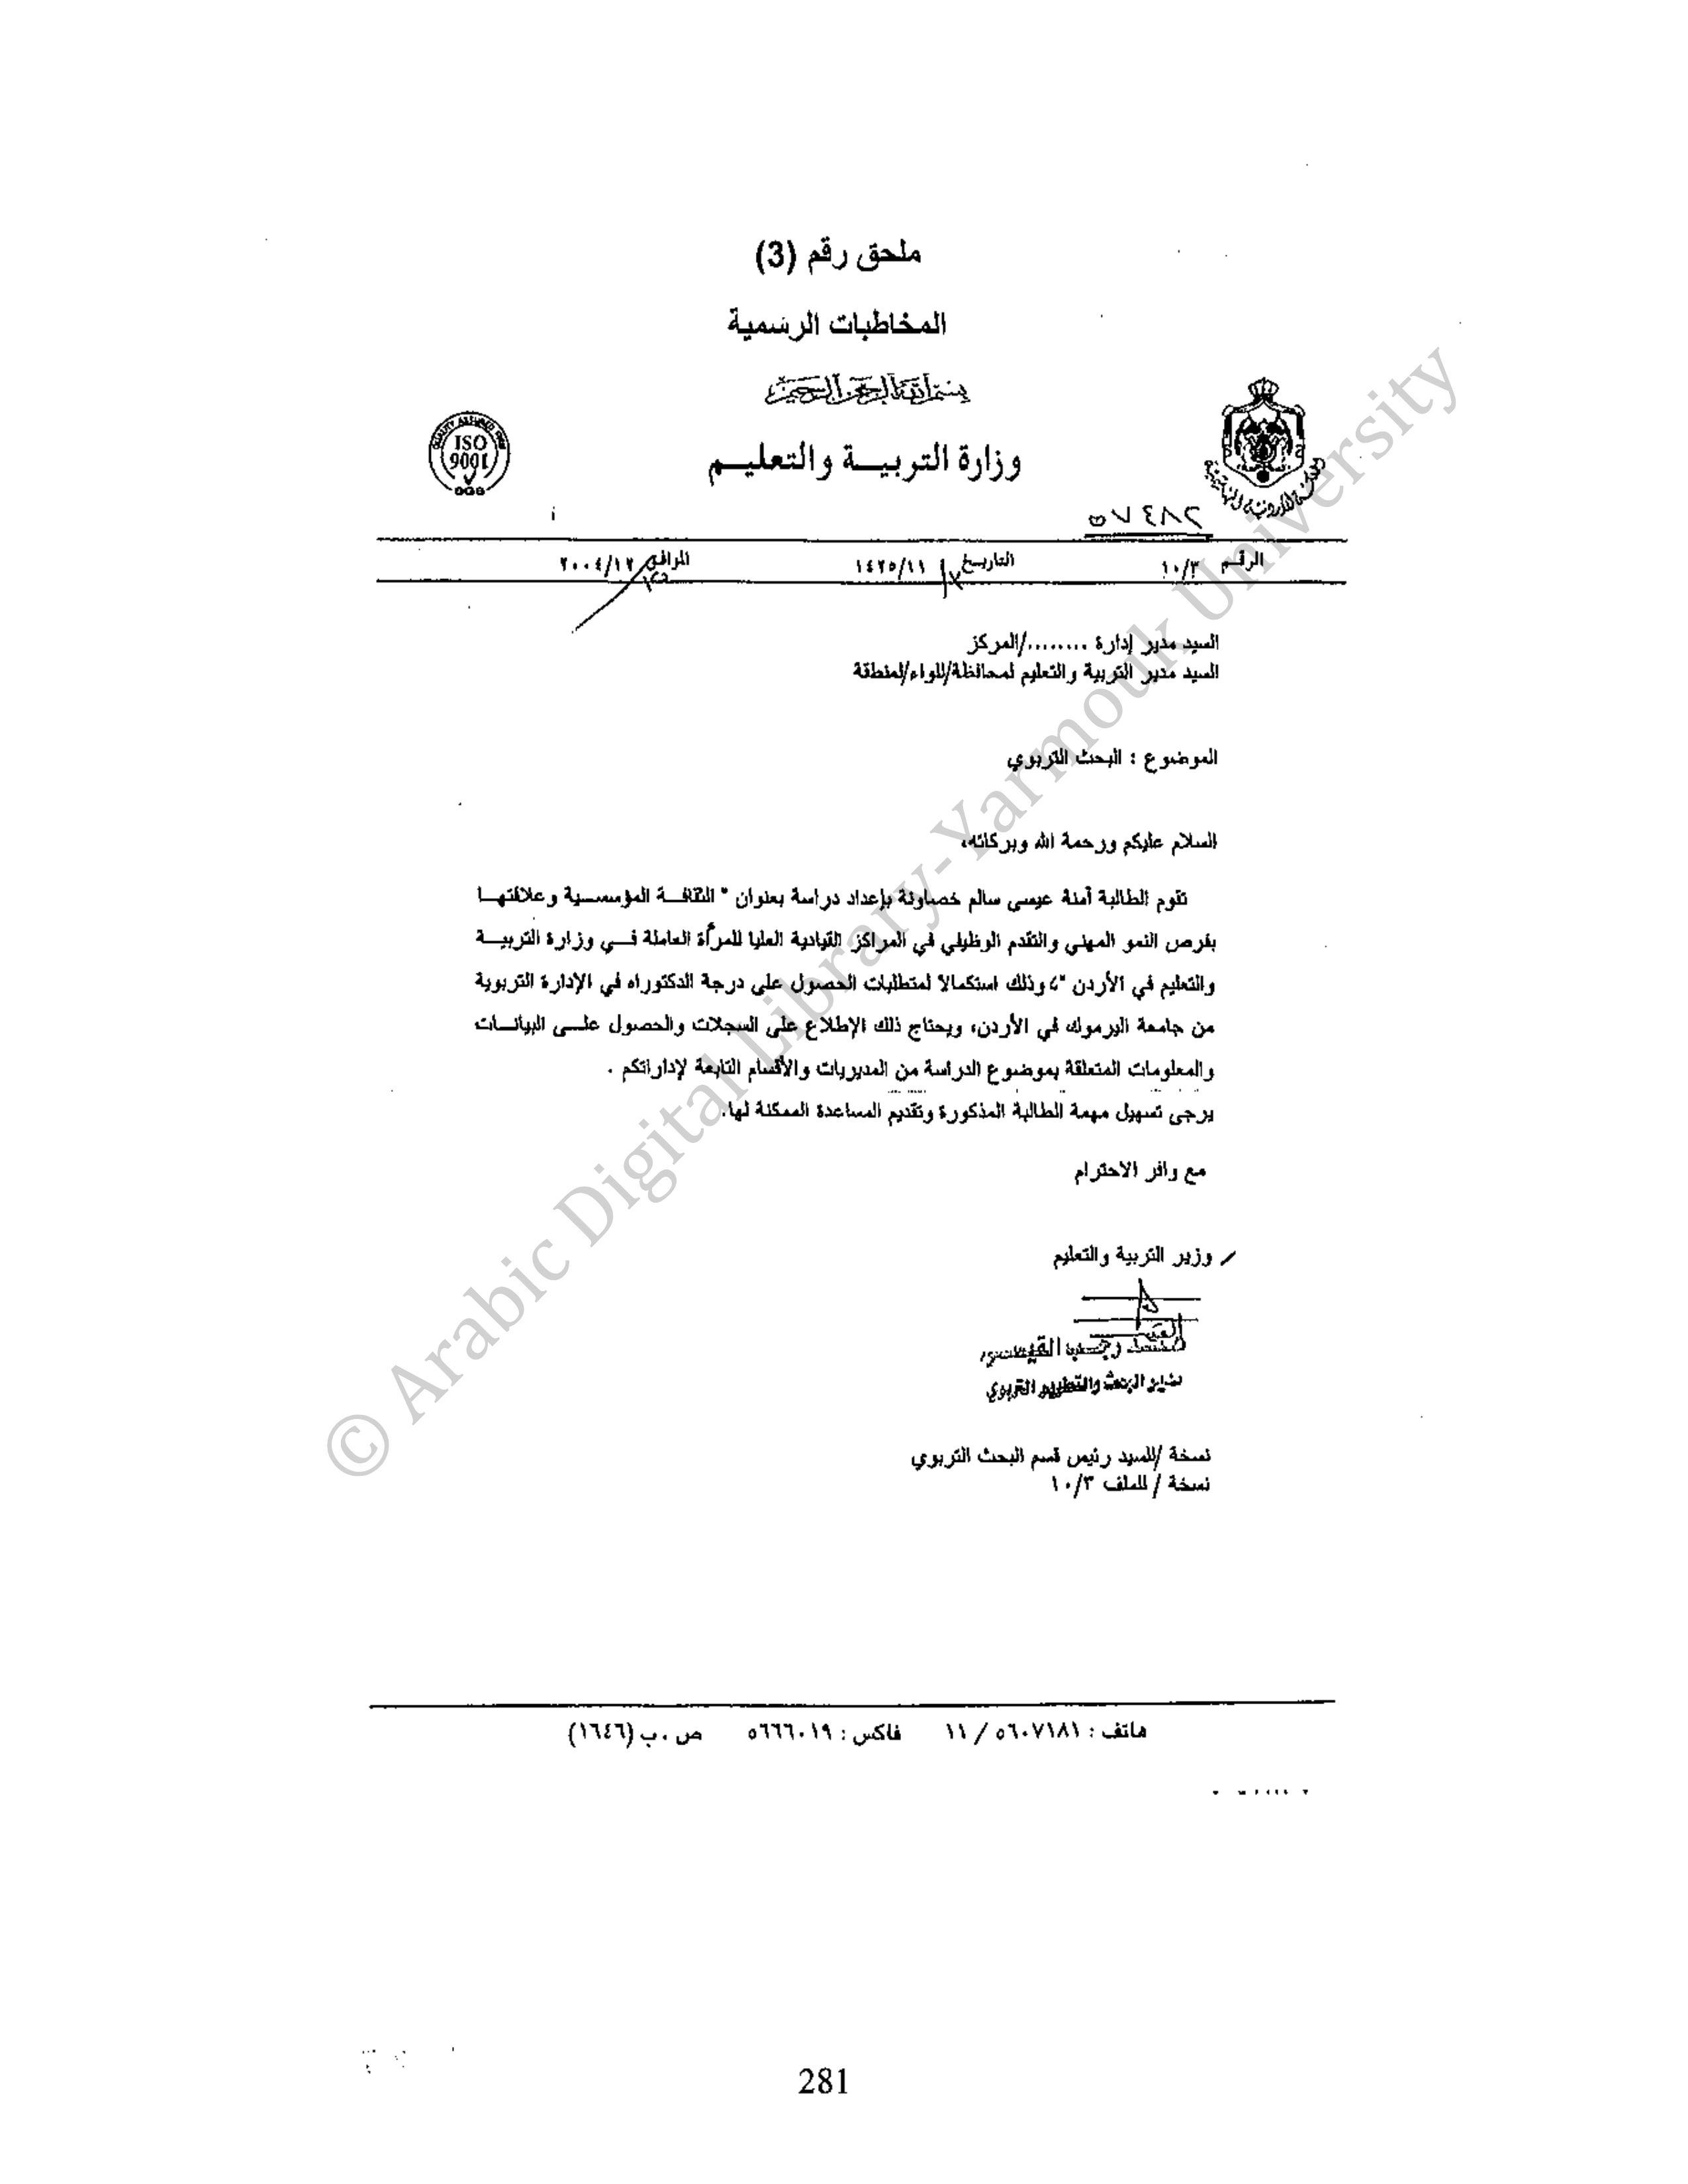 ملحق رقم (3)
المخاطبات الرسمية
بسم الله الرحمن الرحيم
QUALITY ASSURED FIRM
ISO
9001
SGS
وزارة التربيـــة والتعليـــم
المملكة الأردنية الهاشمية
٢٨٤٧٥
الرقـم ١٠/٣
التاريـخ ١٤٢٥/١١/
الموافق ٢٠٠٤/١٢/
السيد مدير إدارة ......../المركز
السيد مدير التربية والتعليم لمحافظة/للواء/لمنطقة
الموضوع : البحث التربوي
السلام عليكم ورحمة الله وبركاته،
تقوم الطالبة آمنة عيسى سالم خصاونة بإعداد دراسة بعنوان " الثقافــة المؤسســية وعلاقتهــا
بفرص النمو المهني والتقدم الوظيفي في المراكز القيادية العليا للمرأة العاملة فـــي وزارة التربيـــة
والتعليم في الأردن "، وذلك استكمالا لمتطلبات الحصول على درجة الدكتوراه في الإدارة التربوية
من جامعة اليرموك في الأردن، ويحتاج ذلك الإطلاع على السجلات والحصول علـــى البيانـــات
والمعلومات المتعلقة بموضوع الدراسة من المديريات والأقسام التابعة لإداراتكم .
يرجى تسهيل مهمة الطالبة المذكورة وتقديم المساعدة الممكنة لها.
مع وافر الاحترام
/ وزير التربية والتعليم
مدير البحث والتطوير التربوي
نسخة /للسيد رئيس قسم البحث التربوي
نسخة / للملف ١٠/٣
هاتف : ٥٦٠٧١٨١ / ١١ فاكس : ٥٦٦٦٠١٩ ص . ب (١٦٤٦)
281
© Arabic Digital Library-Yarmouk University